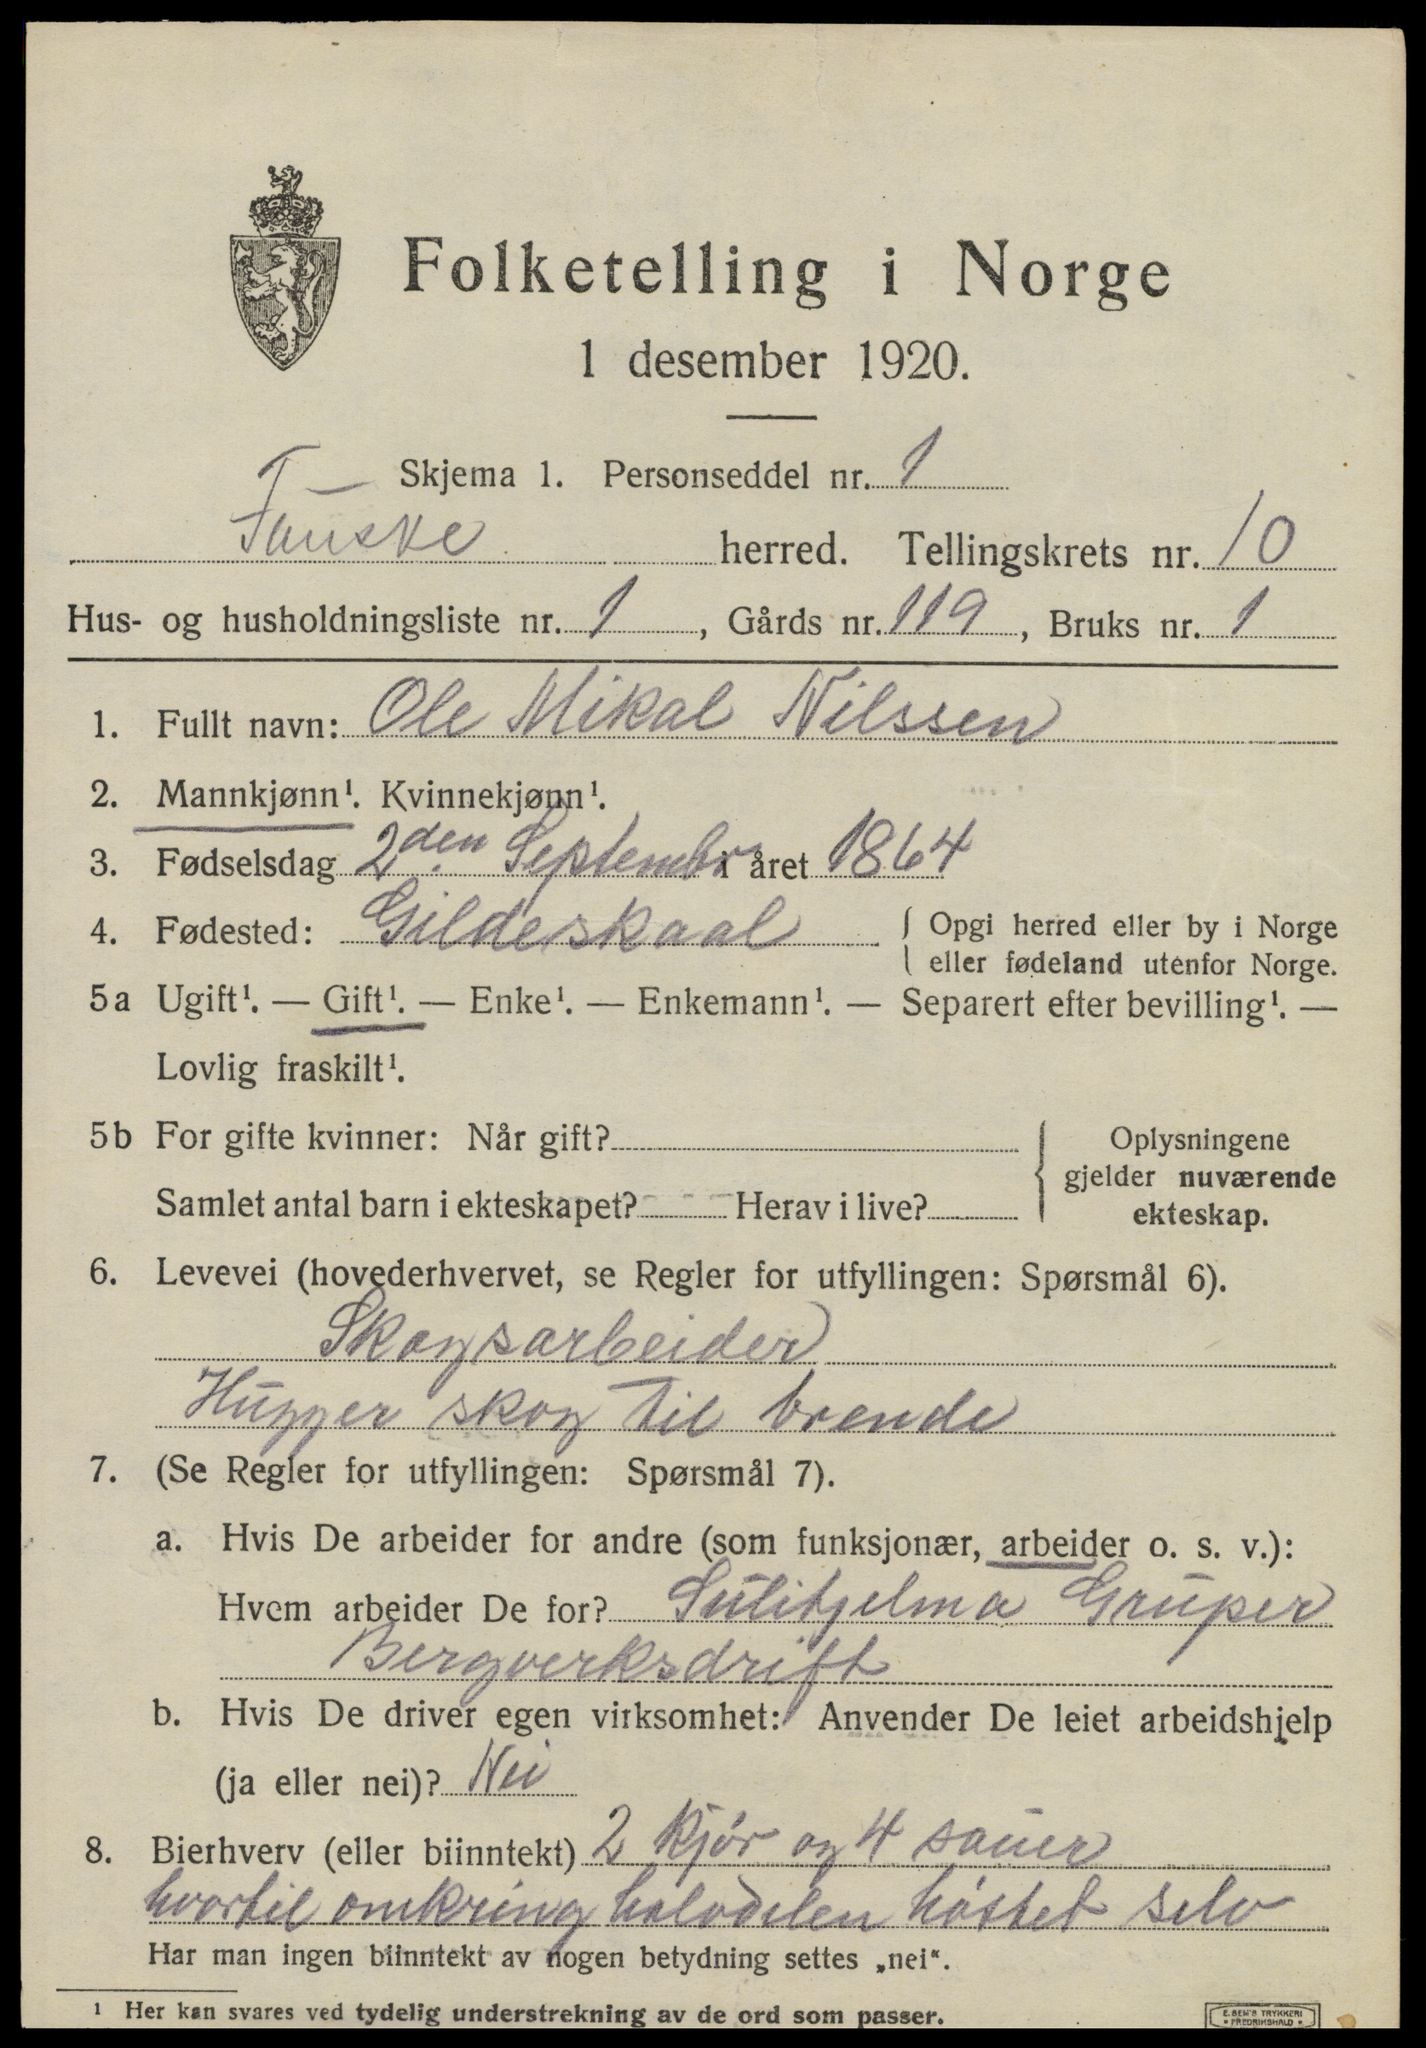 Folketelling i Norge
1 desember 1920.
Skjema 1. Personseddel nr. 1
Fauske herred. Tellingskrets nr. 10
Hus- og husholdningsliste nr. 1, Gårds nr. 119, Bruks nr. 1
1. Fullt navn: Ole Mikal Nilssen
2. Mannkjønn¹. Kvinnekjønn¹.
3. Fødselsdag 2den Septembr i året 1864
4. Fødested: Gildeskaal { Opgi herred eller by i Norge
eller fødeland utenfor Norge.
5a Ugift¹. — Gift¹. — Enke¹. — Enkemann¹. — Separert efter bevilling¹. —
Lovlig fraskilt¹.
5b For gifte kvinner: Når gift?
Samlet antal barn i ekteskapet? Herav i live?
Oplysningene
gjelder nuværende
ekteskap.
6. Levevei (hovederhvervet, se Regler for utfyllingen: Spørsmål 6).
Skogsarbeider
Hugger skog til brende
7. (Se Regler for utfyllingen: Spørsmål 7).
a. Hvis De arbeider for andre (som funksjonær, arbeider o. s. v.):
Hvem arbeider De for? Sulitjelma Gruper
Bergverksdrift
b. Hvis De driver egen virksomhet: Anvender De leiet arbeidshjelp
(ja eller nei)? Nei
8. Bierhverv (eller biinntekt) 2 kjør og 4 sauer
hvortil omkring halvdelen høstet selv
Har man ingen biinntekt av nogen betydning settes „nei“.
¹ Her kan svares ved tydelig understrekning av de ord som passer.
E. SEM'S TRYKKERI
• FREDRIKSHALD •